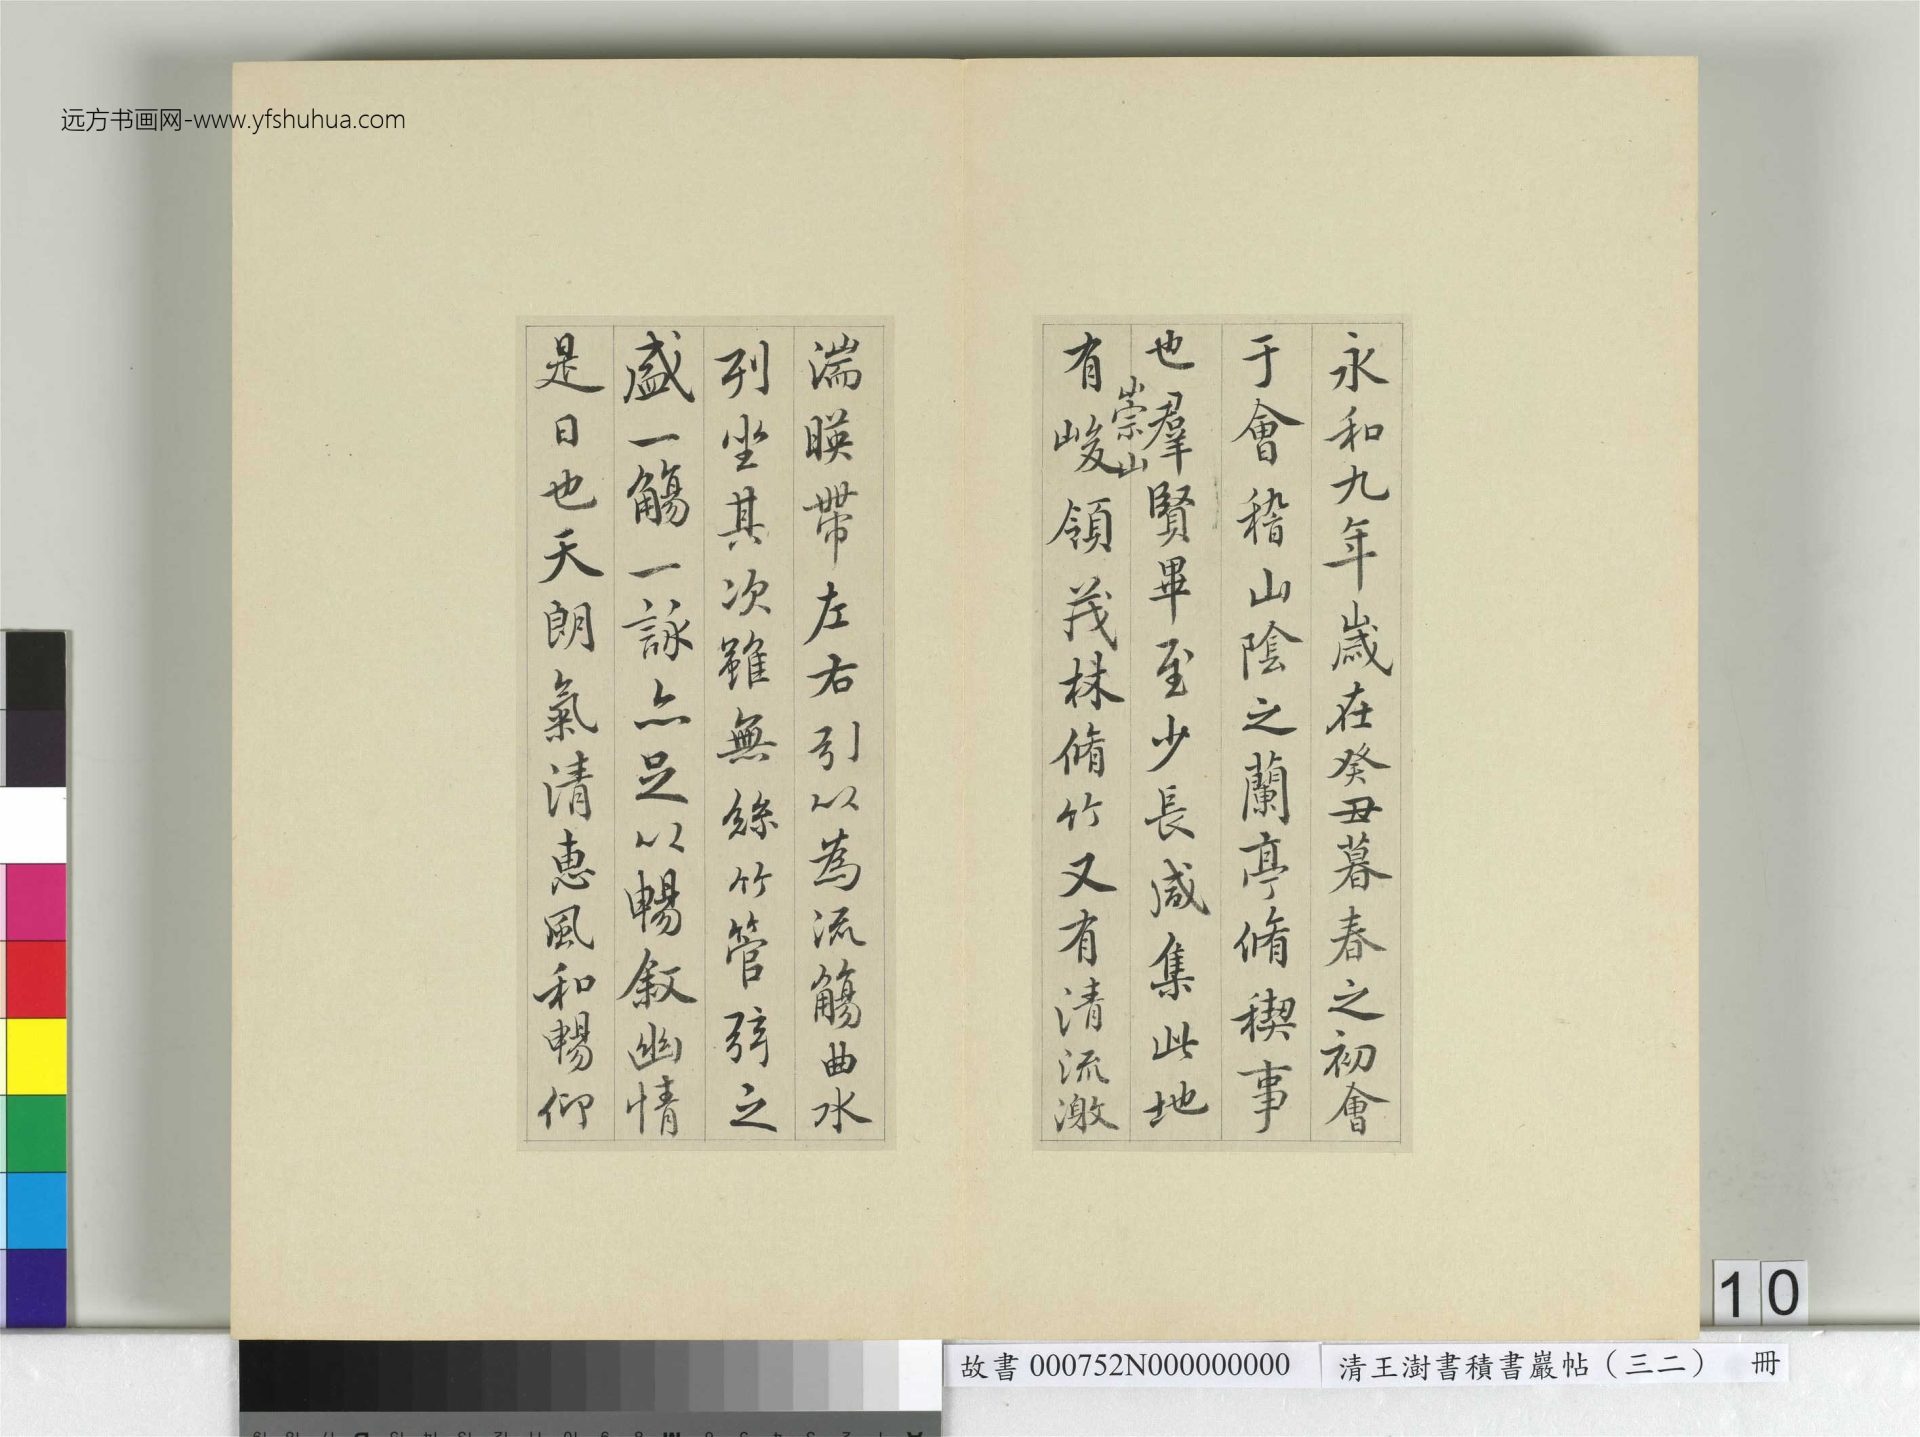 远方书画网-www.yfshuhua.com
永和九年歲在癸丑暮春之初會
于會稽山陰之蘭亭脩稧事
也羣賢畢至少長咸集此地
崇山
有峻領茂林脩竹又有清流激
湍暎帶左右引以為流觴曲水
列坐其次雖無絲竹管弦之
盛一觴一詠亦足以暢敘幽情
是日也天朗氣清惠風和暢仰
10
故書 000752N000000000
清王澍書積書巖帖（三二） 冊